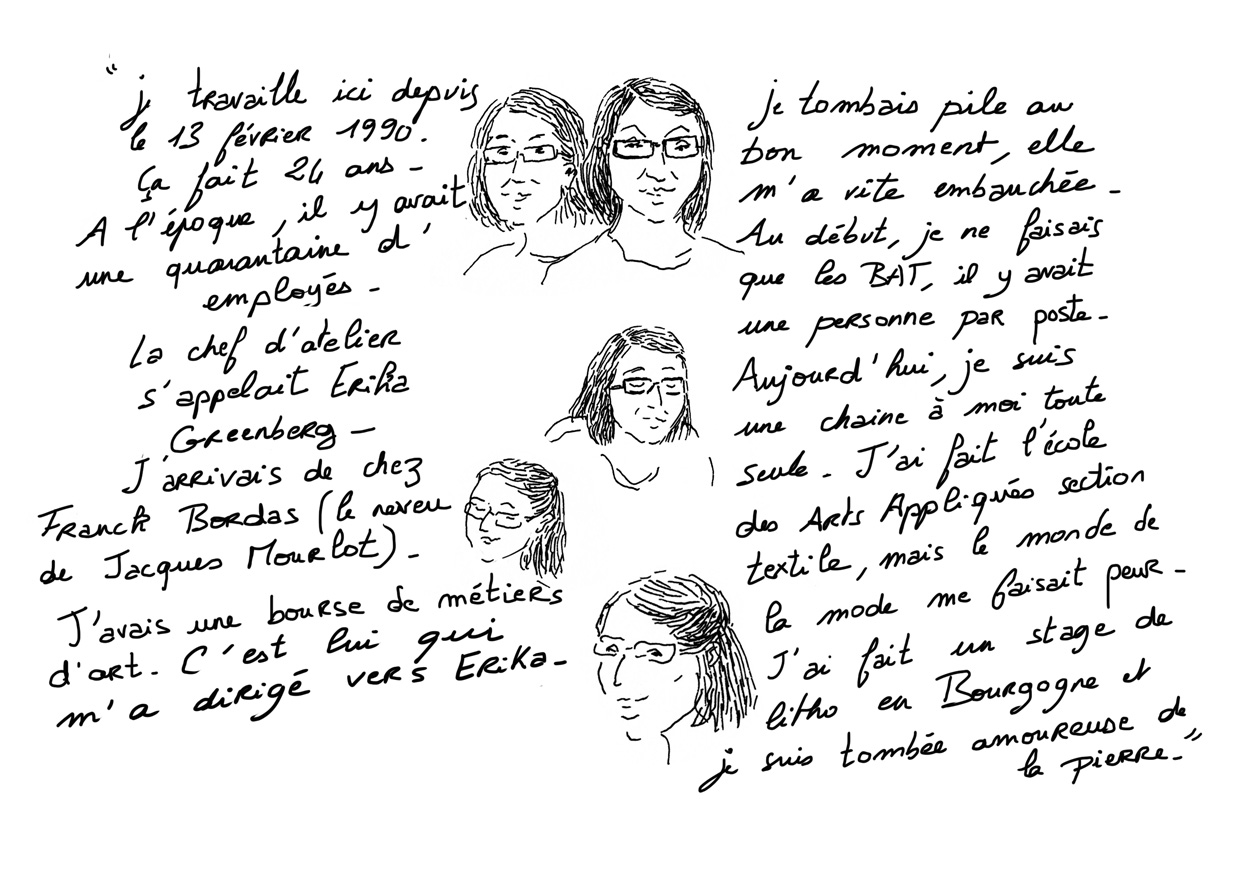 "j travaille ici depuis
le 13 février 1990.
Ça fait 24 ans -
A l'époque, il y avait
une quarantaine d'
employés -
La chef d'atelier
s'appelait Erika
Greenberg -
J'arrivais de chez
Franck Bordas (le neveu
de Jacques Mourlot) -
J'avais une bourse de métiers
d'art. C'est lui qui
m'a dirigé vers Erika -
je tombais pile au
bon moment, elle
m'a vite embauchée -
Au début, je ne faisais
que les BAT, il y avait
une personne par poste -
Aujourd'hui, je suis
une chaine à moi toute
seule - J'ai fait l'école
des Arts Appliqués section
textile, mais le monde de
la mode me faisait peur -
J'ai fait un stage de
litho en Bourgogne et
je suis tombée amoureuse de
la pierre -"